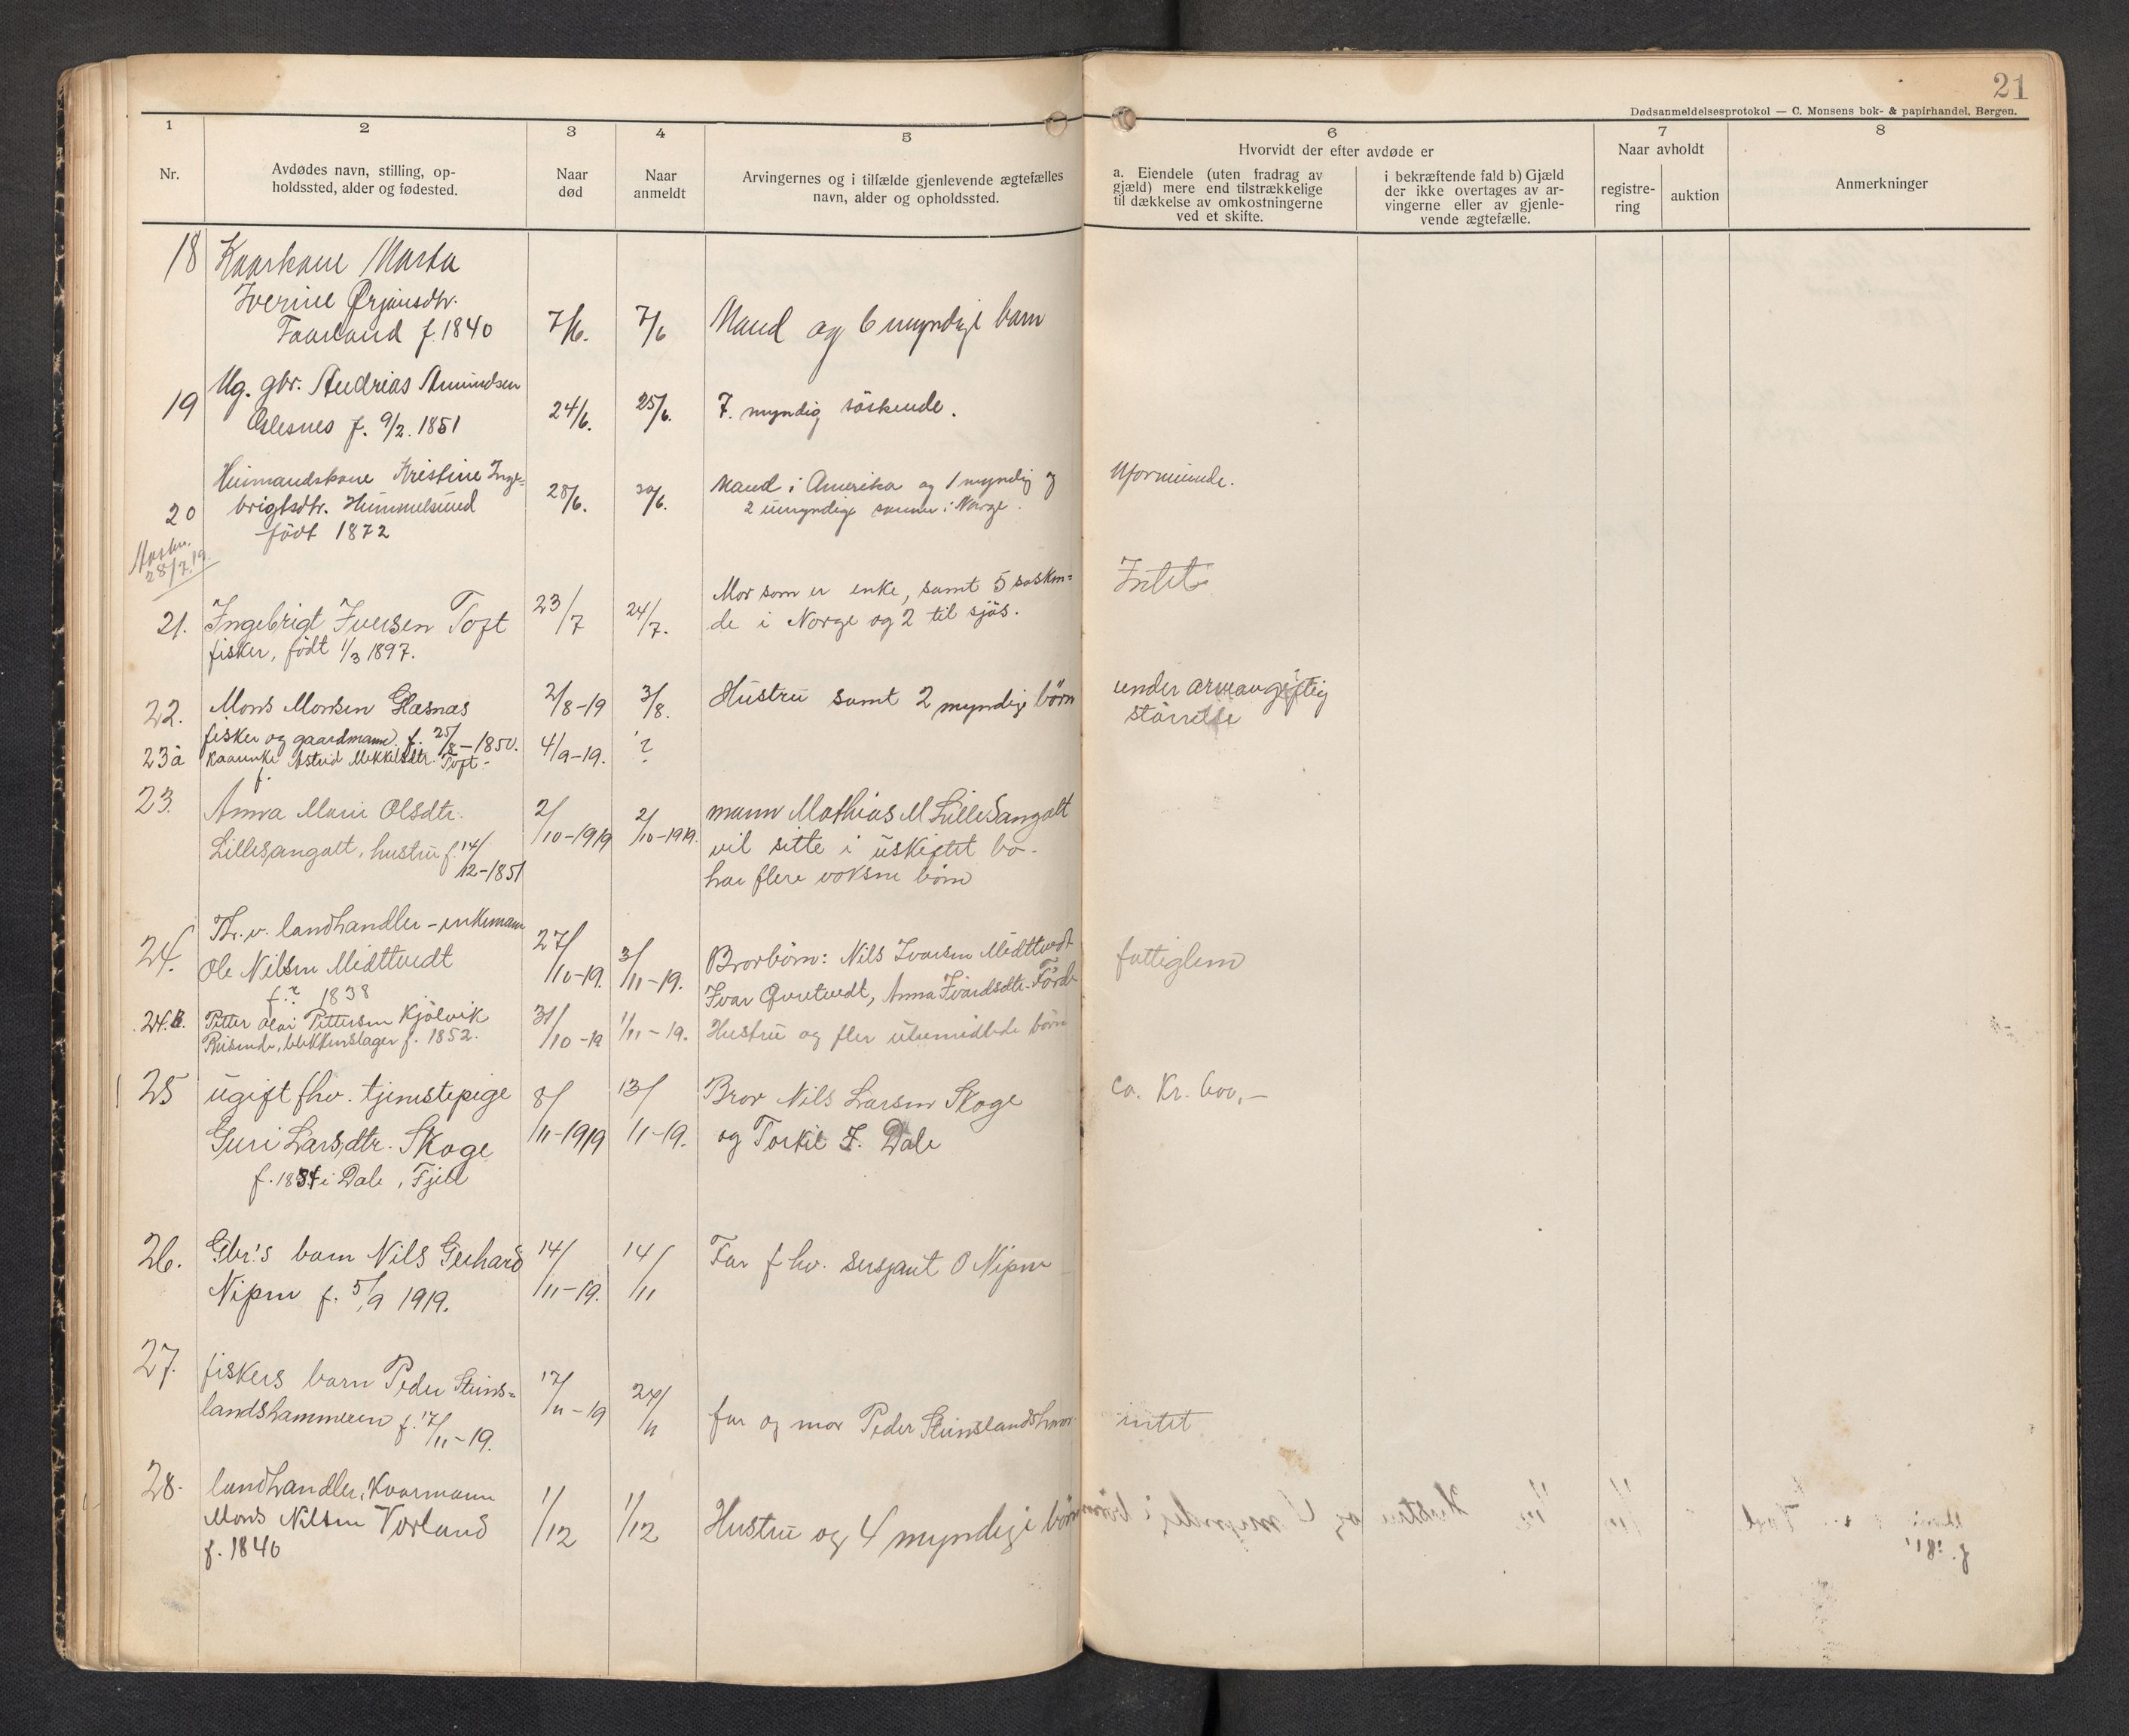 21
Dødsanmeldelsesprotokol — C. Monsens bok- & papirhandel, Bergen.
1 2 3 4 5 6 7 8
Nr.
Avdødes navn, stilling, op-
holdssted, alder og fødested.
Naar
død
Naar
anmeldt
Arvingernes og i tilfælde gjenlevende ægtefælles
navn, alder og opholdssted.
Hvorvidt der efter avdøde er
a. Eiendele (uten fradrag av
gjæld) mere end tilstrækkelige
til dækkelse av omkostningerne
ved et skifte.
i bekræftende fald b) Gjæld
der ikke overtages av ar-
vingerne eller av gjenle-
vende ægtefælle.
Naar avholdt
registre-
ring
auktion
Anmerkninger
18 Kaarkone Marta
Iverine Ørjansdtr.
Faarland f. 1840 7/6. 7/6 Mand og 6 myndige barn
19 Ug. gbr. Andrias Amundsen
Glesnes f. 9/2. 1851 24/6. 25/6. 7. myndig söskende.
20 Husmandskone Kristine Inge-
brigtsdtr. Hummelsund
födt 1872 28/6. 30/6. Mand i Amerika og 1 myndig og
2 umyndige sønner i Norge. Uformuende.
28/7.19.
21. Ingebrigt Iversen Toft
fisker, födt 1/3 1897. 23/7 24/7. Mor som er enke, samt 5 søsken-
de i Norge og 2 til sjös. Intet
22. Mons Monsen Glæsnæs
fisker og gaardmann. f. 25/8-1850. 2/8-19 3/8. Hustru samt 2 myndige börn under arveavgiftig
störrelse
23a Kaarenke Astrid Mikkelsdtr. Toft. 4/9-19. ?
f.
23. Anna Marie Olsdtr.
Lillesangolt, hustru f. 14/12-1851 2/10-1919 2/10-1919. mann Mathias M Lillesangolt
vil sitte i uskiftet bo.
har flere voksne börn
24. Fh.v. landhandler - enkemann
Ole Nilsen Midttvedt
f. ? 1838 27/10-19. 3/11-19. Brorbörn: Nils Ivarsen Midttvedt
Ivar Qvretvedt, Anna Ivarsdtr. Förde fattiglem
24.B. Petter Olai Pettersen Kjölvik
Reisende, blikkenslager f. 1852. 31/10-19 1/11-19. Hustru og fler ubemidlede börn
25 ugift fhv. tjenestepige
Guri Larsdtr. Skoge
f. 1834 i Dale, Fjell 8/11-1919 13/11-19. Bror Nils Larsen Skoge
og Torkil I. Dale ca. Kr. 600,-
26. Gbr's barn Nils Gerhard
Nipen f. 5/9 1919. 14/11-19. 14/11 Far fhv. sersjant O Nipen
27. fiskers barn Peder Steins-
landshammeren f. 17/11-19. 17/11-19 24/11 far og mor Peder Steinslandshmr intet
28. landhandler, Kaarmann
Mons Nilsen Vorland
f. 1840 1/12 1/12 Hustru og 4 myndige börn